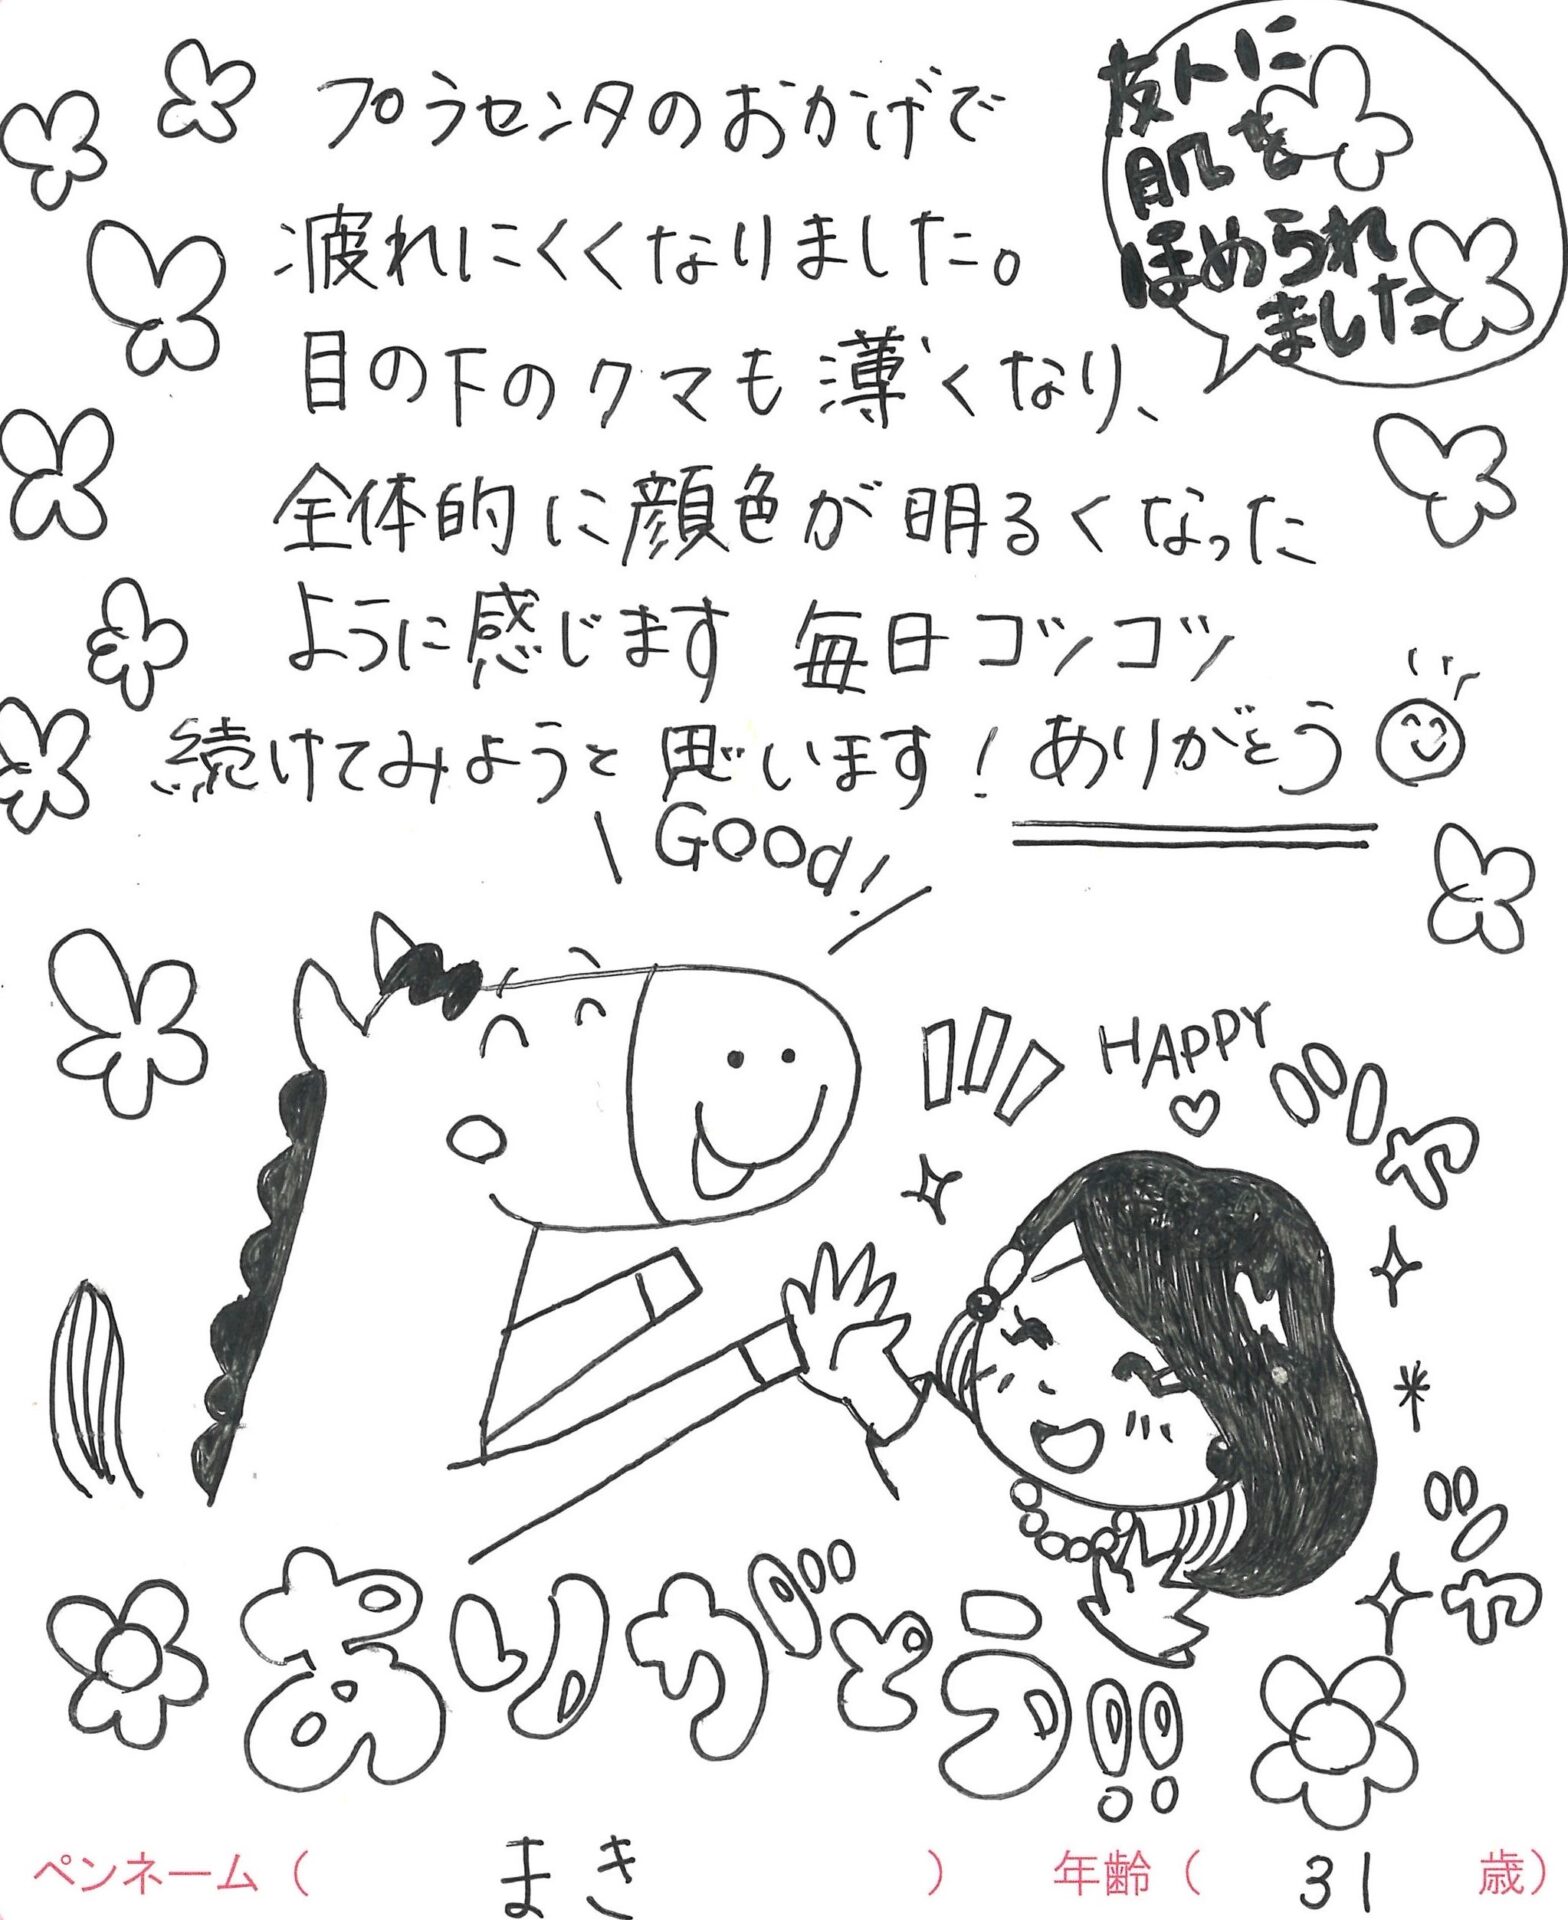 プラセンタのおかげで
疲れにくくなりました。
目の下のクマも薄くなり、
全体的に顔色が明るくなった
ように感じます 毎日コツコツ
続けてみようと思います！ありがとう
友人に
肌を
ほめられ
ました
GOOd!
HAPPY
ありがとう!!
ペンネーム（まき）年齢（31歳）